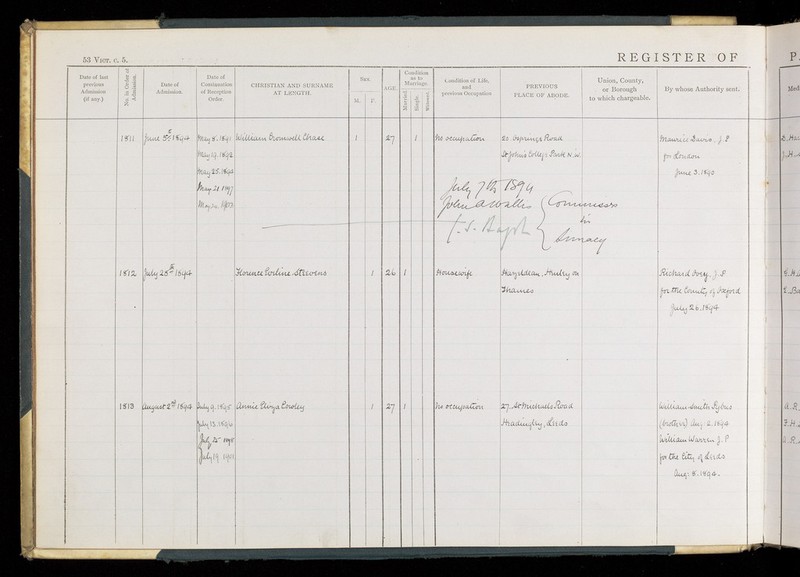 53 VICT. c. 5.
REGISTER OF
P.
Date of last previous Admission (if any.)
No. in Order of Admission.
Date of Admission.
Date of Continuation of Reception Order.
CHRISTIAN AND SURNAME AT LENGTH.
Sex.
M. F.
Age
Condition as to Marriage.
Married Single Widowed
Condition of Life, and previous Occupation
PREVIOUS PLACE OF ABODE.
Union, County, or Borough to which chargeable.
By whose Authority sent.
Med
1811 June 5th 1894 May 8. 1891 William Cromwell Chase 1 27 1 No occupation 20 Road Maurice Davis, J.P
May 19. 1892 St John's College Park N.W. for London
May 25. 1894 June 3. 1890
May 21 1897
July 7th 1894
John A Wallis
Commissrs
in
Lunacy
1812 July 28th 1894 Florence Stevens 1 26 1 Housewife Harpsden, Henley on Richard Ovey, J.P
Thames for the County of Oxford
July 26. 1894
1813 August 2nd 1894 July 9. 1895 Annie Cowley 1 27 1 No occupation 27 St Michaels Road William Smith
July 13. 1896 Headingley, Leeds (brother) Aug. 2. 1894
July 25 William Warren J.P
July 19 for the City of Leeds
Aug: 8. 1894